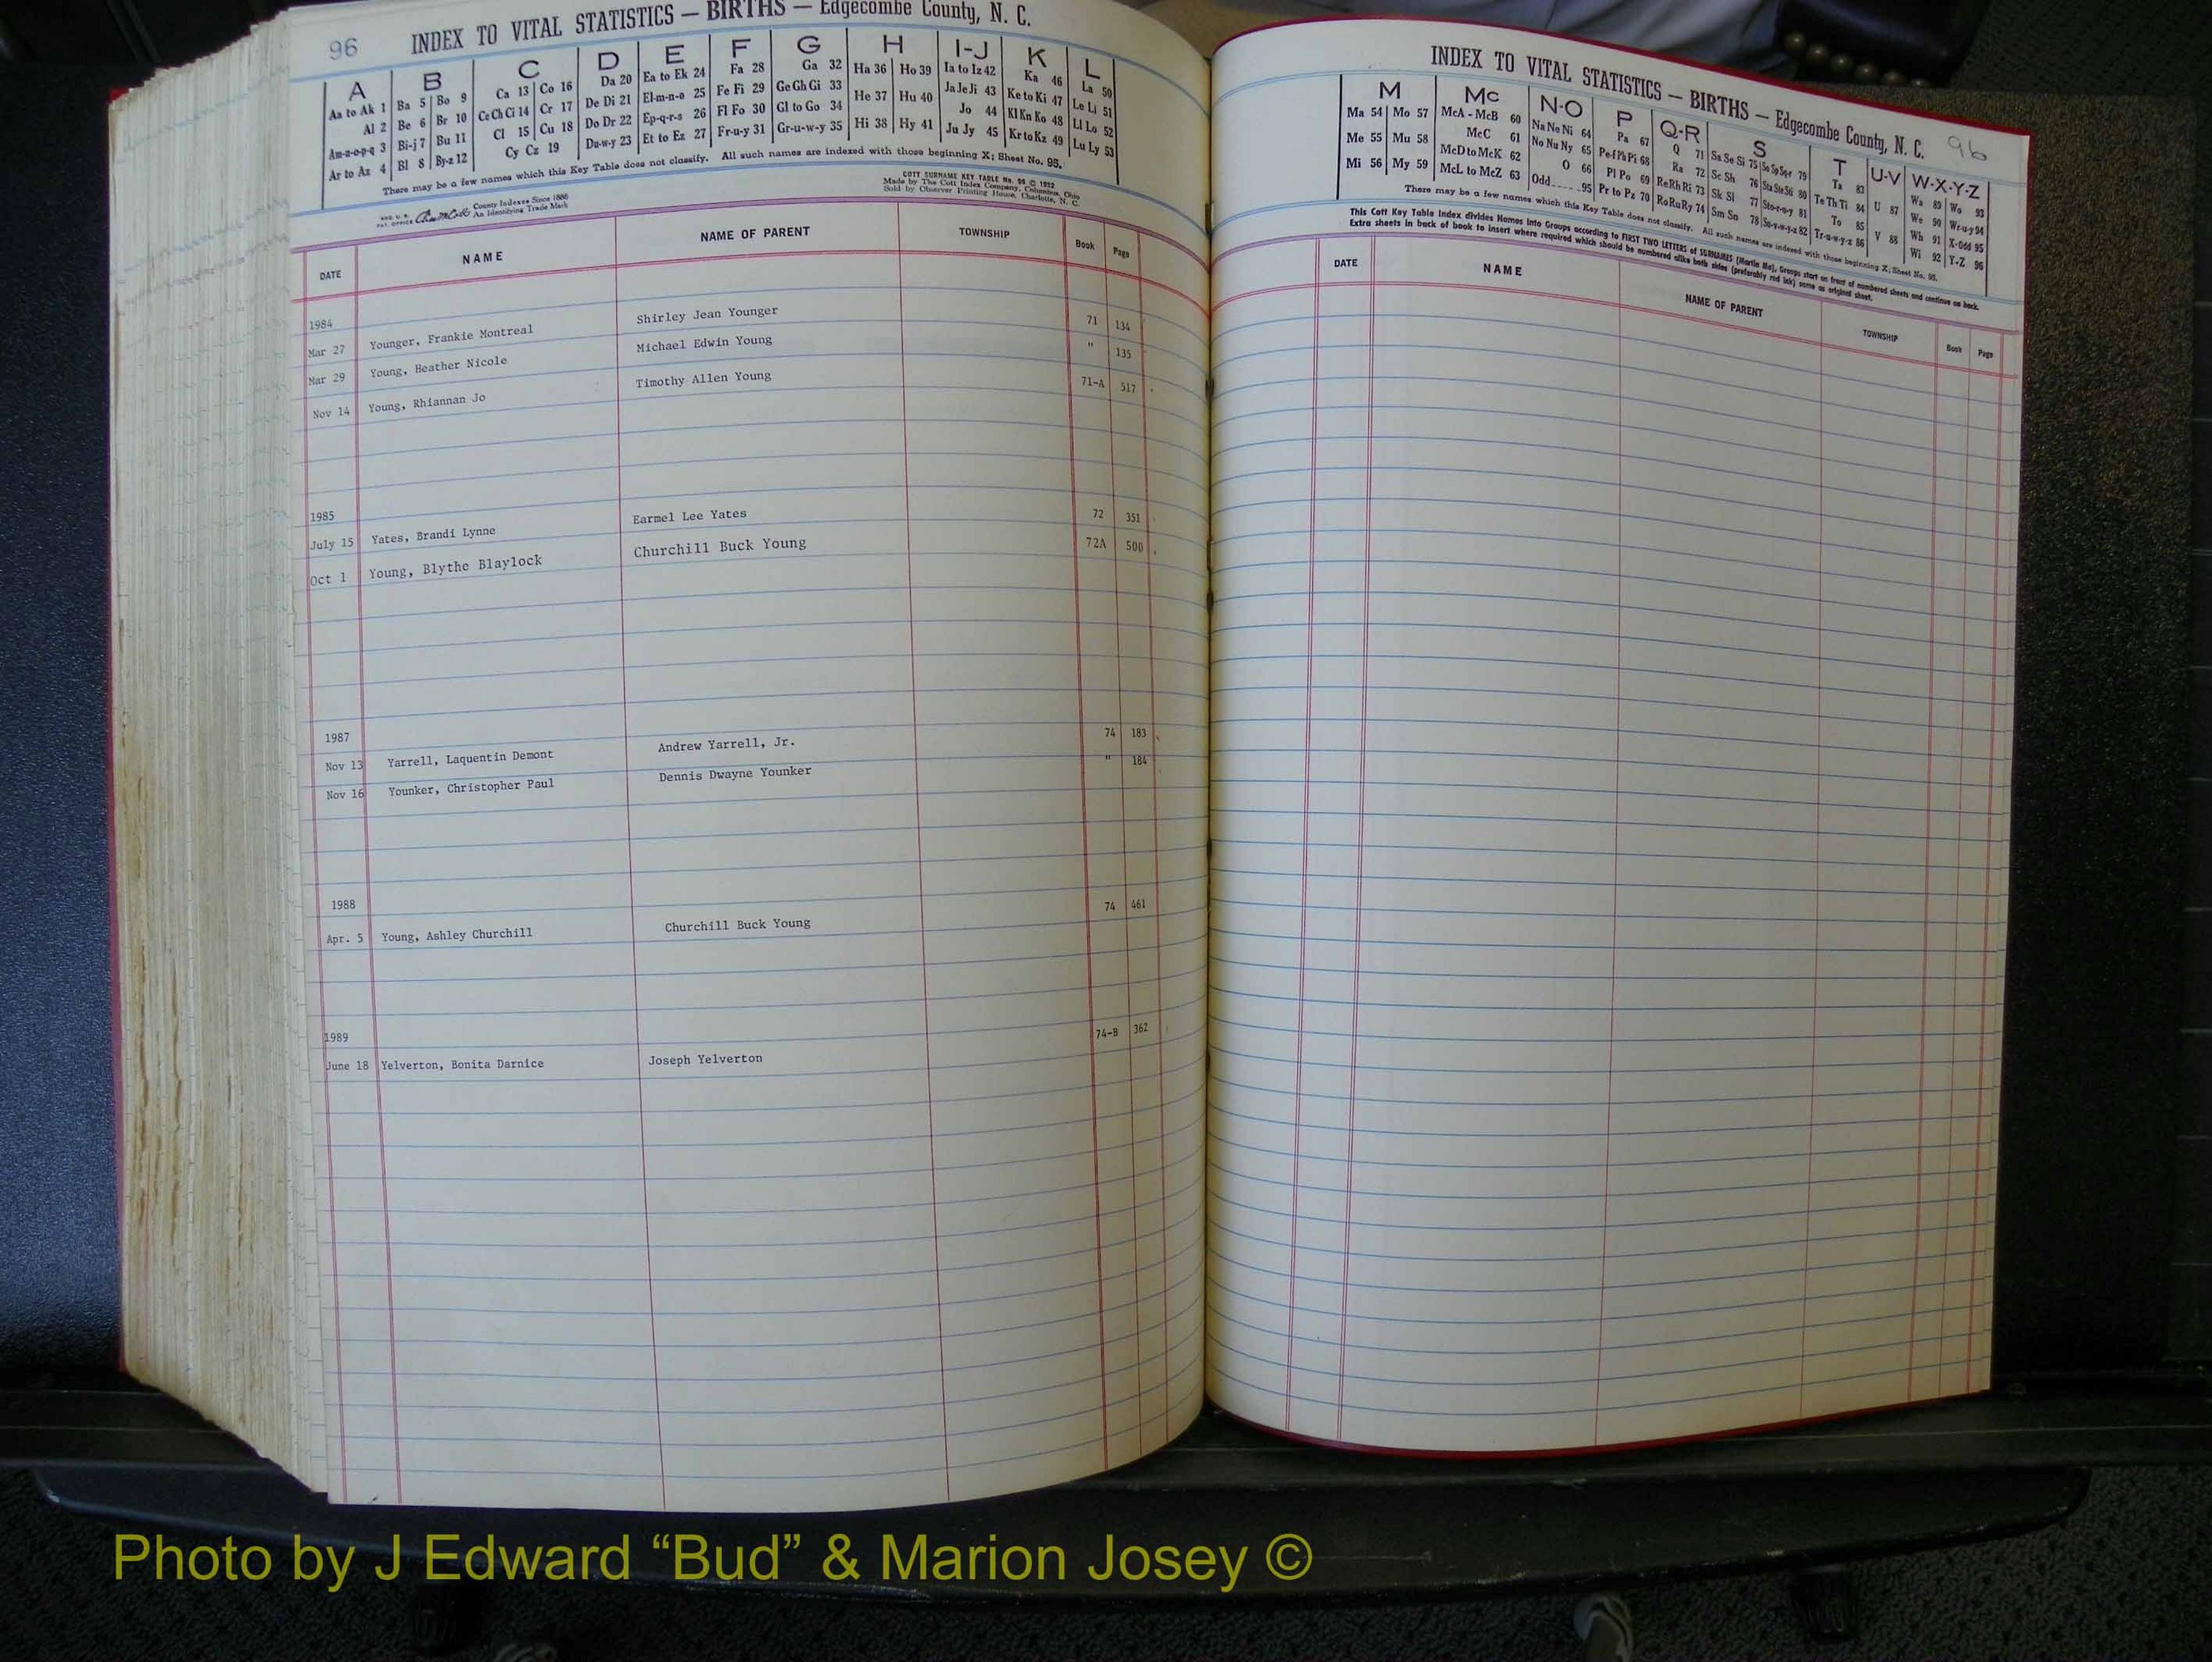 96 INDEX TO VITAL STATISTICS — BIRTHS — Edgecombe County, N. C.
A B C D E F G H I-J K L
Aa to Ak 1 Ba 5 Bo 9 Ca 13 Co 16 Da 20 Ea to Ek 24 Fa 28 Ga 32 Ha 36 Ho 39 Ia to Iz 42 Ka 46 La 50
Al 2 Be 6 Br 10 Ce Ch Ci 14 Cr 17 De Di 21 El-m-n-o 25 Fe Fi 29 Ge Gh Gi 33 He 37 Hu 40 Ja Je Ji 43 Ke to Ki 47 Le Li 51
Am-n-o-p-q 3 Bi-j 7 Bu 11 Cl 15 Cu 18 Do Dr 22 Ep-q-r-s 26 Fl Fo 30 Gl to Go 34 Hi 38 Hy 41 Jo 44 Kl Kn Ko 48 Ll Lo 52
Ar to Az 4 Bl 8 By-z 12 Cy Cz 19 Du-w-y 23 Et to Ez 27 Fr-u-y 31 Gr-u-w-y 35 Ju Jy 45 Kr to Kz 49 Lu Ly 53
There may be a few names which this Key Table does not classify. All such names are indexed with those beginning X; Sheet No. 95.
REG. U. S. PAT. OFFICE
County Indexes Since 1888
An Identifying Trade Mark
COTT SURNAME KEY TABLE No. 96 © 1952
Made by The Cott Index Company, Columbus, Ohio
Sold by Observer Printing House, Charlotte, N. C.
DATE NAME NAME OF PARENT TOWNSHIP Book Page
1984
Mar 27 Younger, Frankie Montreal Shirley Jean Younger 71 134
Mar 29 Young, Heather Nicole Michael Edwin Young " 135
Nov 14 Young, Rhiannan Jo Timothy Allen Young 71-A 517
1985
July 15 Yates, Brandi Lynne Earmel Lee Yates 72 351
Oct 1 Young, Blythe Blaylock Churchill Buck Young 72A 500
1987
Nov 13 Yarrell, Laquentin Demont Andrew Yarrell, Jr. 74 183
Nov 16 Younker, Christopher Paul Dennis Dwayne Younker " 184
1988
Apr. 5 Young, Ashley Churchill Churchill Buck Young 74 461
1989
June 18 Yelverton, Bonita Darnice Joseph Yelverton 74-B 362
INDEX TO VITAL STATISTICS — BIRTHS — Edgecombe County, N. C. 96
M Mc N-O P Q-R S T U-V W-X-Y-Z
Ma 54 Mo 57 McA - McB 60 Na Ne Ni 64 Pa 67 Q 71 Sa Se Si 75 So Sp Sq-r 79 Ta 83 U 87 Wa 89 Wo 93
Me 55 Mu 58 McC 61 No Nu Ny 65 Pe-f Ph Pi 68 Ra 72 Sc Sh 76 Sta Ste Sti 80 Te Th Ti 84 V 88 We 90 Wr-u-y 94
Mi 56 My 59 McD to McK 62 O 66 Pl Po 69 Re Rh Ri 73 Sk Sl 77 Sto-r-u-y 81 To 85 Wh 91 X-Odd 95
McL to McZ 63 Odd 95 Pr to Pz 70 Ro Ru Ry 74 Sm Sn 78 Su-v-w-y-z 82 Tr-u-w-y-z 86 Wi 92 Y-Z 96
There may be a few names which this Key Table does not classify. All such names are indexed with those beginning X; Sheet No. 95.
This Cott Key Table Index divides Names into Groups according to FIRST TWO LETTERS of SURNAMES (Martin Ma). Groups start on front of numbered sheets and continue on back.
Extra sheets in back of book to insert where required which should be numbered alike both sides (preferably red ink) same as original sheet.
DATE NAME NAME OF PARENT TOWNSHIP Book Page
Photo by J Edward “Bud” & Marion Josey ©